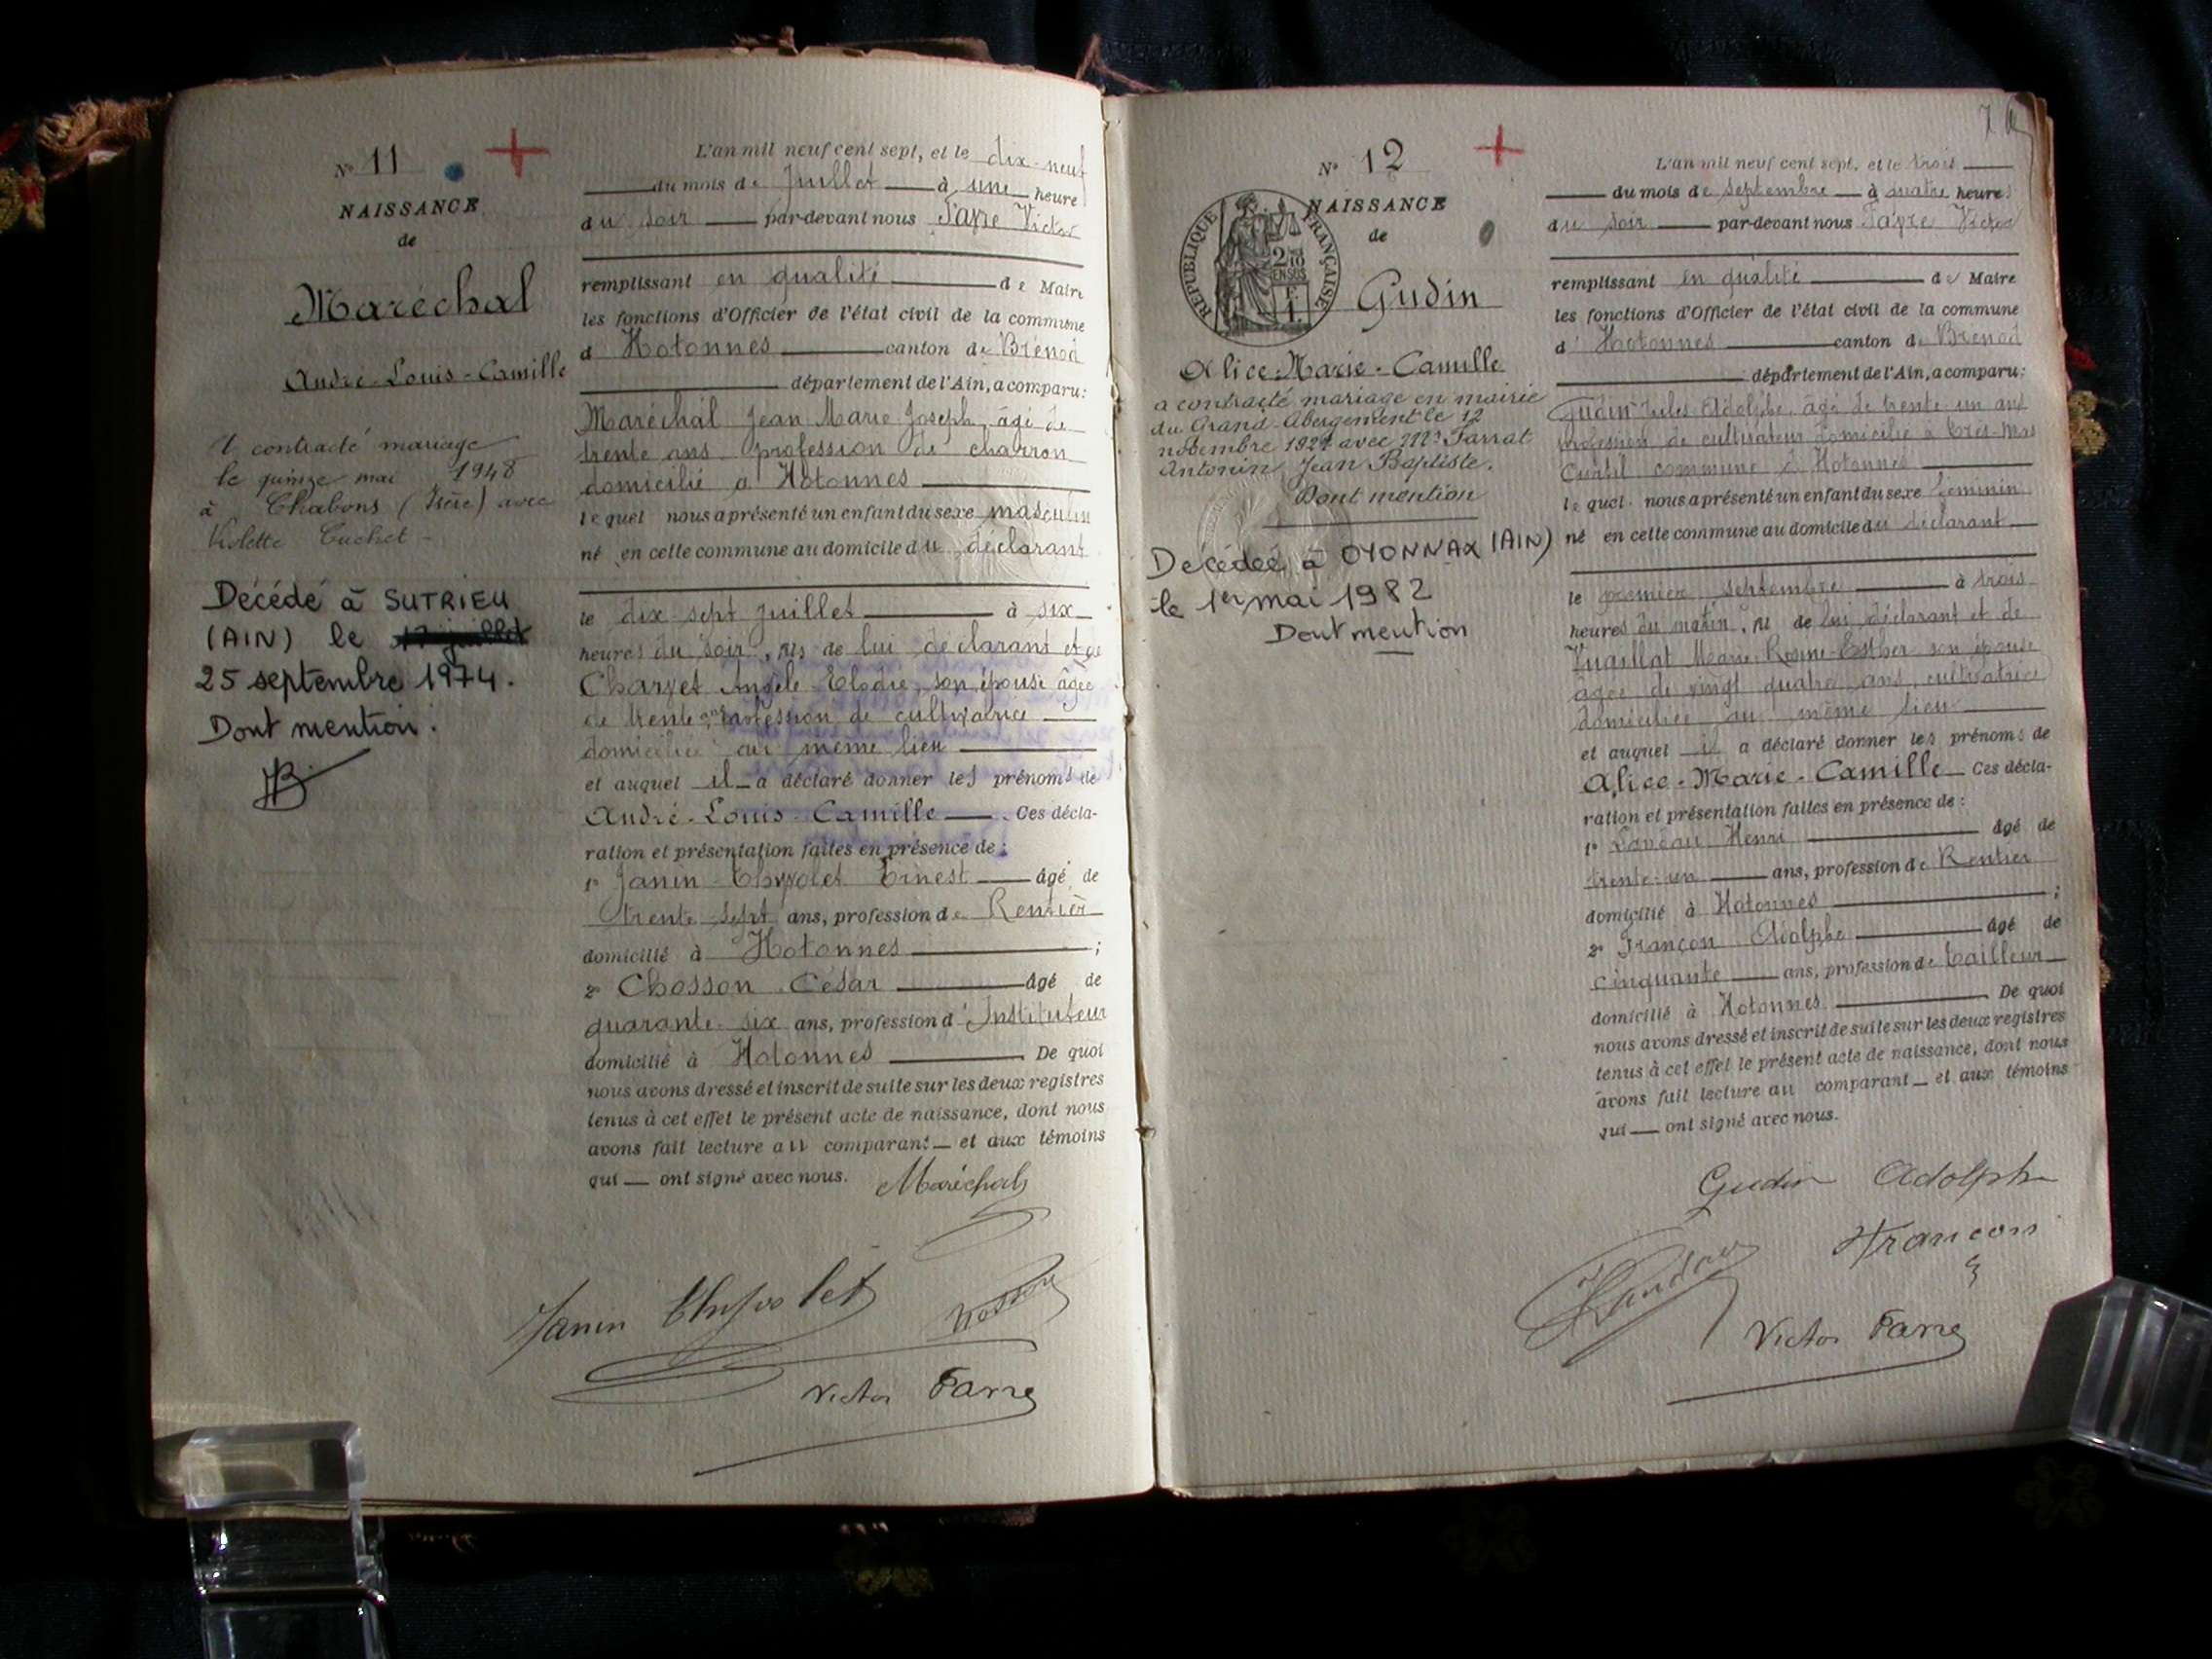 N° 11
NAISSANCE
de
Maréchal
André-Louis-Camille
A contracté mariage
le quinze mai 1948
à Chabons (Isère) avec
Violette Cuchet
Décédé à SUTRIEU
(AIN) le 17 juillet
25 septembre 1974.
Dont mention.
L'an mil neuf cent sept, et le dix-neuf
du mois de Juillet à une heure
du soir par-devant nous Favre Victor
remplissant en qualité de Maire
les fonctions d'Officier de l'état civil de la commune
d Hotonnes canton de Brénod
département de l'Ain, a comparu:
Maréchal Jean Marie Joseph, âgé de
trente ans profession de charron
domicilié à Hotonnes
lequel nous a présenté un enfant du sexe masculin
né en cette commune au domicile du déclarant
le dix sept juillet à six
heures du soir, fils de lui déclarant et de
Charvet Angèle Elodie, son épouse âgée
de trente ans profession de cultivatrice
domiciliée au même lieu
et auquel il a déclaré donner les prénoms de
André-Louis-Camille. Ces décla-
ration et présentation faites en présence de :
1° Janin-Thyvolet Ernest âgé de
trente-sept ans, profession de Rentier
domicilié à Hotonnes ;
2° Chosson César âgé de
quarante-six ans, profession d'Instituteur
domicilié à Hotonnes De quoi
nous avons dressé et inscrit de suite sur les deux registres
tenus à cet effet le présent acte de naissance, dont nous
avons fait lecture au comparant et aux témoins
qui ont signé avec nous. Maréchal
Janin Thyvolet
Victor Favre
N° 12
NAISSANCE
de
RÉPUBLIQUE FRANÇAISE
Gudin
Alice-Marie-Camille
a contracté mariage en mairie
du Grand-Abergement le 12
novembre 1927 avec Mr Farrat
Antonin Jean Baptiste.
Dont mention
Décédée à OYONNAX (AIN)
le 1er mai 1982
Dont mention
L'an mil neuf cent sept, et le trois
du mois de septembre à quatre heures
du soir par-devant nous Favre Victor
remplissant en qualité de Maire
les fonctions d'Officier de l'état civil de la commune
d'Hotonnes canton de Brénod
département de l'Ain, a comparu:
Gudin Jules Adolphe, âgé de trente un ans
profession de cultivateur domicilié à
commune d'Hotonnes
lequel nous a présenté un enfant du sexe féminin
né en cette commune au domicile du déclarant
le premier septembre à trois
heures du matin, fil de lui déclarant et de
Vuaillat Marie-Rosine-Esther son épouse
âgée de vingt quatre ans, cultivatrice
domiciliée au même lieu
et auquel il a déclaré donner les prénoms de
Alice-Marie-Camille Ces décla-
ration et présentation faites en présence de :
1° Henri âgé de
trente-un ans, profession de Rentier
domicilié à Hotonnes ;
2° Françon Adolphe âgé de
cinquante ans, profession de tailleur
domicilié à Hotonnes De quoi
nous avons dressé et inscrit de suite sur les deux registres
tenus à cet effet le présent acte de naissance, dont nous
avons fait lecture au comparant et aux témoins
qui ont signé avec nous.
Gudin Adolphe
Françon
Victor Favre